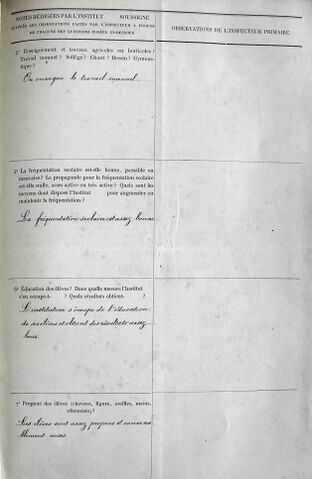 NOTES RÉDIGÉES PAR L'INSTITUT SOUSSIGNÉ
D'APRÈS LES OBSERVATIONS FAITES PAR M. L'INSPECTEUR A PROPOS
DE CHACUNE DES QUESTIONS POSÉES CI-DESSOUS
OBSERVATIONS DE L'INSPECTEUR PRIMAIRE
4° Enseignement et travaux agricoles ou horticoles ?
Travail manuel ? Solfège ? Chant ? Dessin ? Gymnas-
tique ?
On enseigne le travail manuel.
5° La fréquentation scolaire est-elle bonne, passable ou
mauvaise ? La propagande pour la fréquentation scolaire
est-elle nulle, assez active ou très active ? Quels sont les
moyens dont dispose l'Institut pour augmenter ou
maintenir la fréquentation ?
La fréquentation scolaire est assez bonne.
6° Éducation des élèves ? Dans quelle mesure l'Institut
s'en occupe-t- ? Quels résultats obtient- ?
L'institutrice s'occupe de l'éducation
de ses élèves et obtient des résultats assez
bons.
7° Propreté des élèves (cheveux, figure, oreilles, mains,
vêtements) ?
Les élèves sont assez propres et convena-
blement mises.